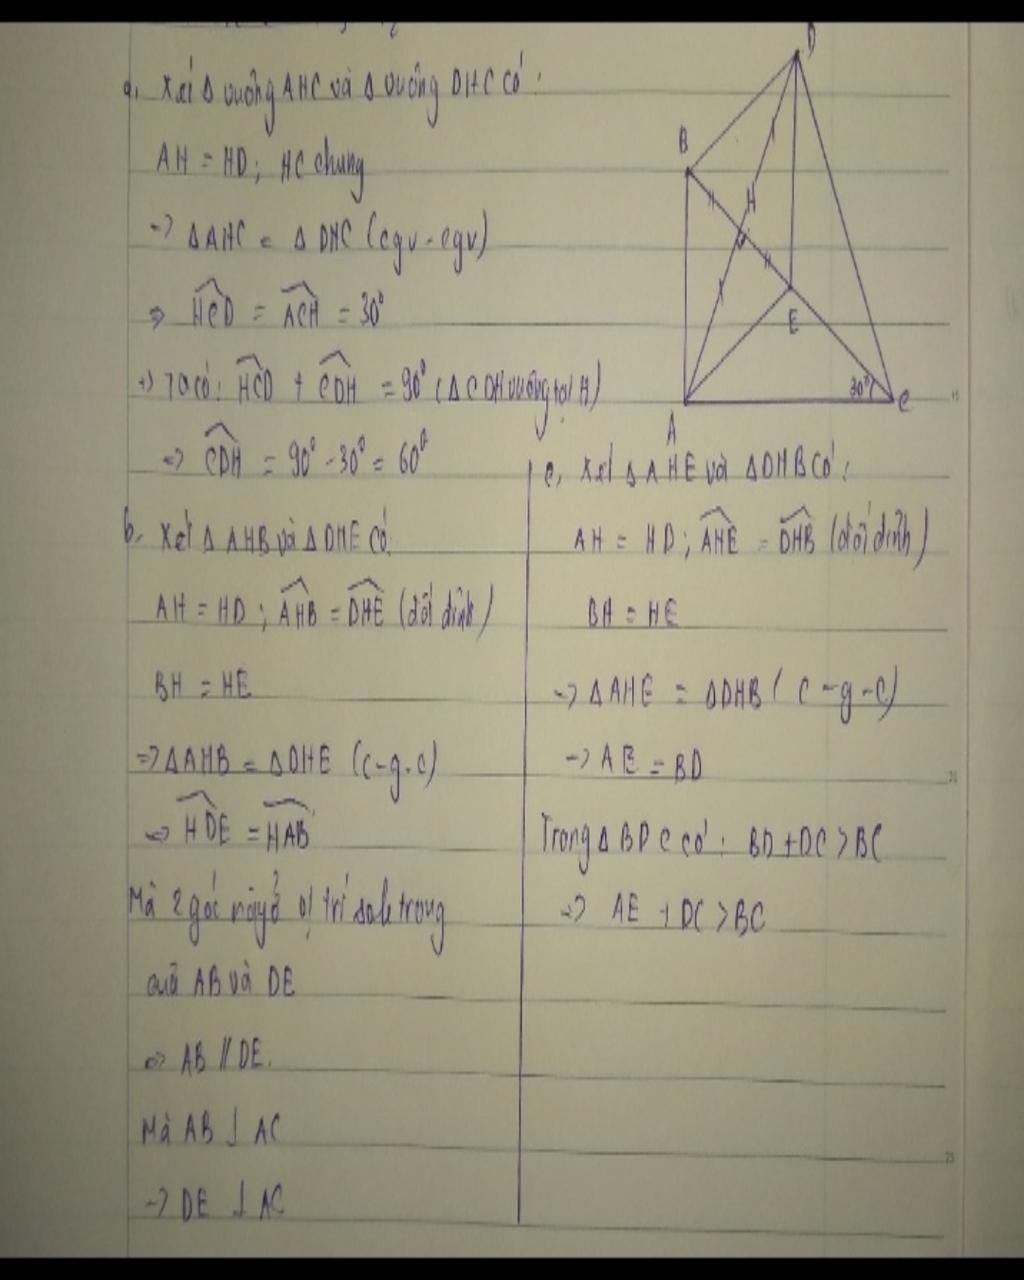 a, Xét Δ vuông AHC và Δ vuông DHC có :
AH = HD ; HC chung
=> ΔAHC = ΔDHC (cgv - cgv)
=> HCD = ACH = 30°
+) Ta có : HCD + CDH = 90° (ΔCDH vuông tại H)
=> CDH = 90° - 30° = 60°
b, Xét Δ AHB và Δ DHE có
AH = HD ; AHB = DHE (đối đỉnh)
BH = HE
=> ΔAHB = ΔDHE (c-g-c)
=> HDE = HAB
Mà 2 góc này ở vị trí so le trong
của AB và DE
=> AB // DE.
Mà AB ⊥ AC
=> DE ⊥ AC
D
B
H
E
30°
C
A
c, Xét Δ AHE và ΔDHB có :
AH = HD ; AHE = DHB (đối đỉnh)
BH = HE
=> ΔAHE = ΔDHB ( c-g-c)
=> AE = BD
Trong Δ BDC có : BD + DC > BC
=> AE + DC > BC
15
20
25